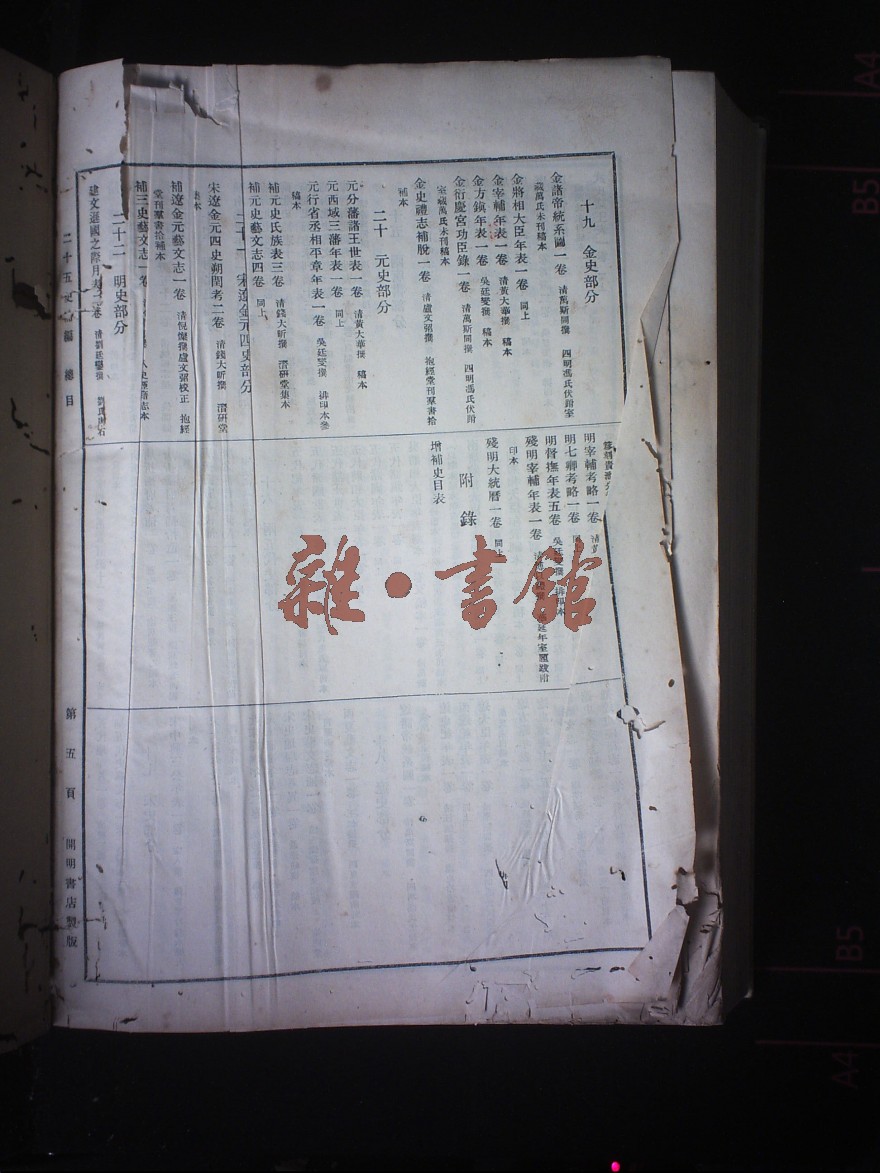 十九　金史部分
金諸帝統系圖一卷　清萬斯同撰　四明馮氏伏跗室
藏萬氏未刊稿本
金將相大臣年表一卷　同上
金宰輔年表一卷　清黃大華撰　稿本
金方鎮年表一卷　吳廷燮撰　稿本
金衍慶宮功臣錄一卷　清萬斯同撰　四明馮氏伏跗
室藏萬氏未刊稿本
金史禮志補脫一卷　清盧文弨撰　抱經堂刊羣書拾
補本
二十　元史部分
元分藩諸王世表一卷　清黃大華撰　稿本
元西域三藩年表一卷　同上
元行省丞相平章年表一卷　吳廷燮撰　排印本參
稿本
補元史氏族表三卷　清錢大昕撰　潛研堂集本
補元史藝文志四卷　同上
二十一　宋遼金元四史部分
宋遼金元四史朔閏考二卷　清錢大昕撰　潛研堂
集本
補遼金元藝文志一卷　清倪燦撰盧文弨校正　抱經
堂刊羣書拾補本
補三史藝文志一卷　八史經籍志本
二十二　明史部分
建文遜國之際月表二卷　清劉廷鑾撰
明宰輔考略一卷　清黃
明七卿考略一卷
明督撫年表五卷　吳廷燮撰　排印本
殘明宰輔年表一卷　延年室
印本
殘明大統曆一卷　同上
附　錄
增補史目表
二十五史補編　總目
第五頁
開明書店製版
雜·書館
A4
B5
B5
A4